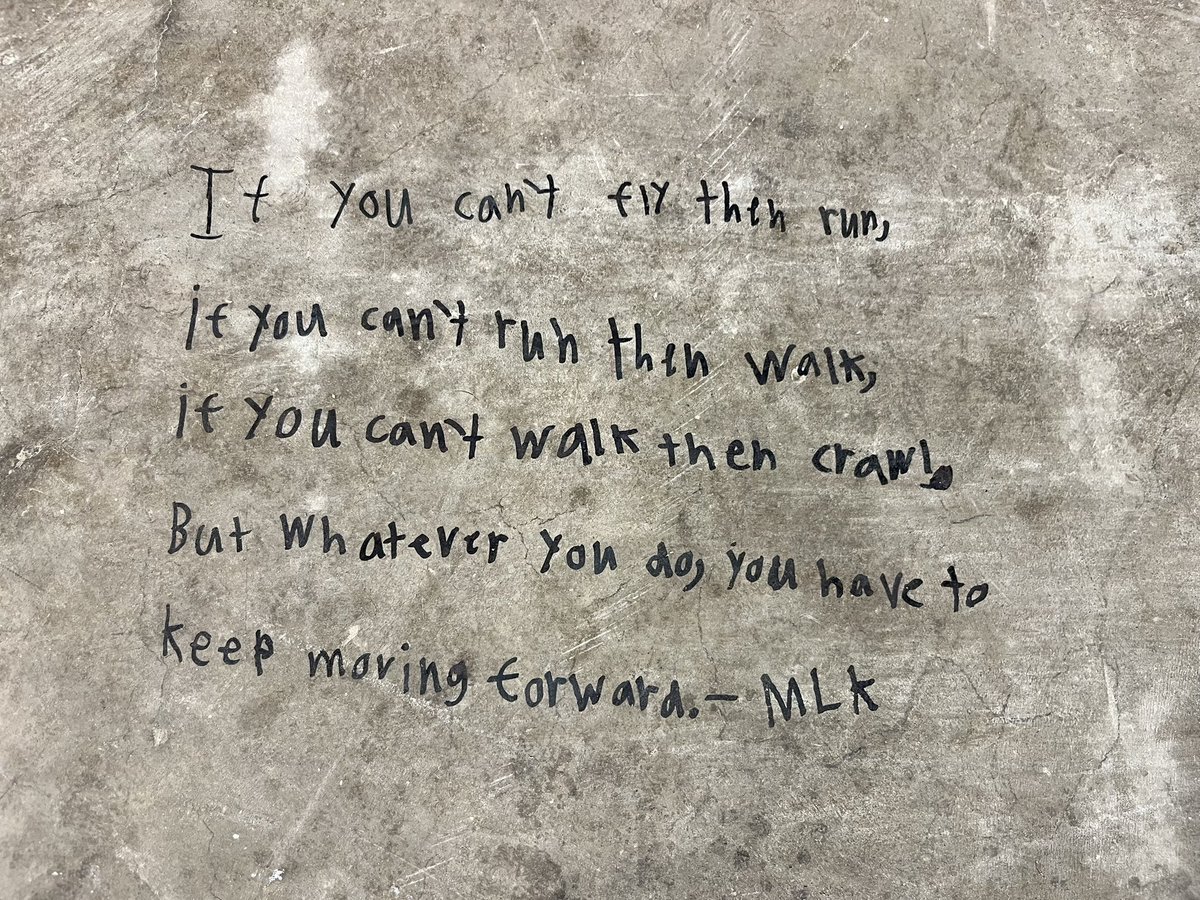 If you can't fly then run,
if you can't run then walk,
if you can't walk then crawl,
But whatever you do, you have to
keep moving forward. - MLK